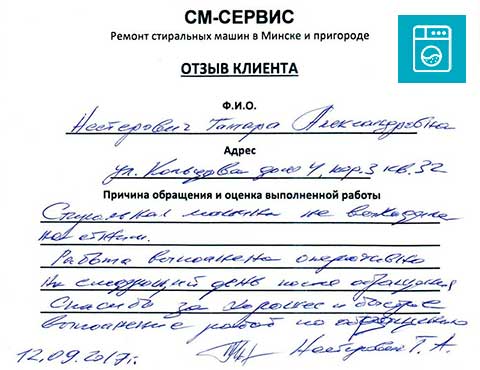 СМ-СЕРВИС
Ремонт стиральных машин в Минске и пригороде
ОТЗЫВ КЛИЕНТА
Ф.И.О.
Нестерович Тамара Александровна
Адрес
ул. Кольцова дом 4, кор.3 кв.32
Причина обращения и оценка выполненной работы
Стиральная машина не
Работа выполнена оперативно
на следующий день после обращения
Спасибо за хорошее и быстрое
выполнение работ по
12.09.2017г. Нестерович Т. А.